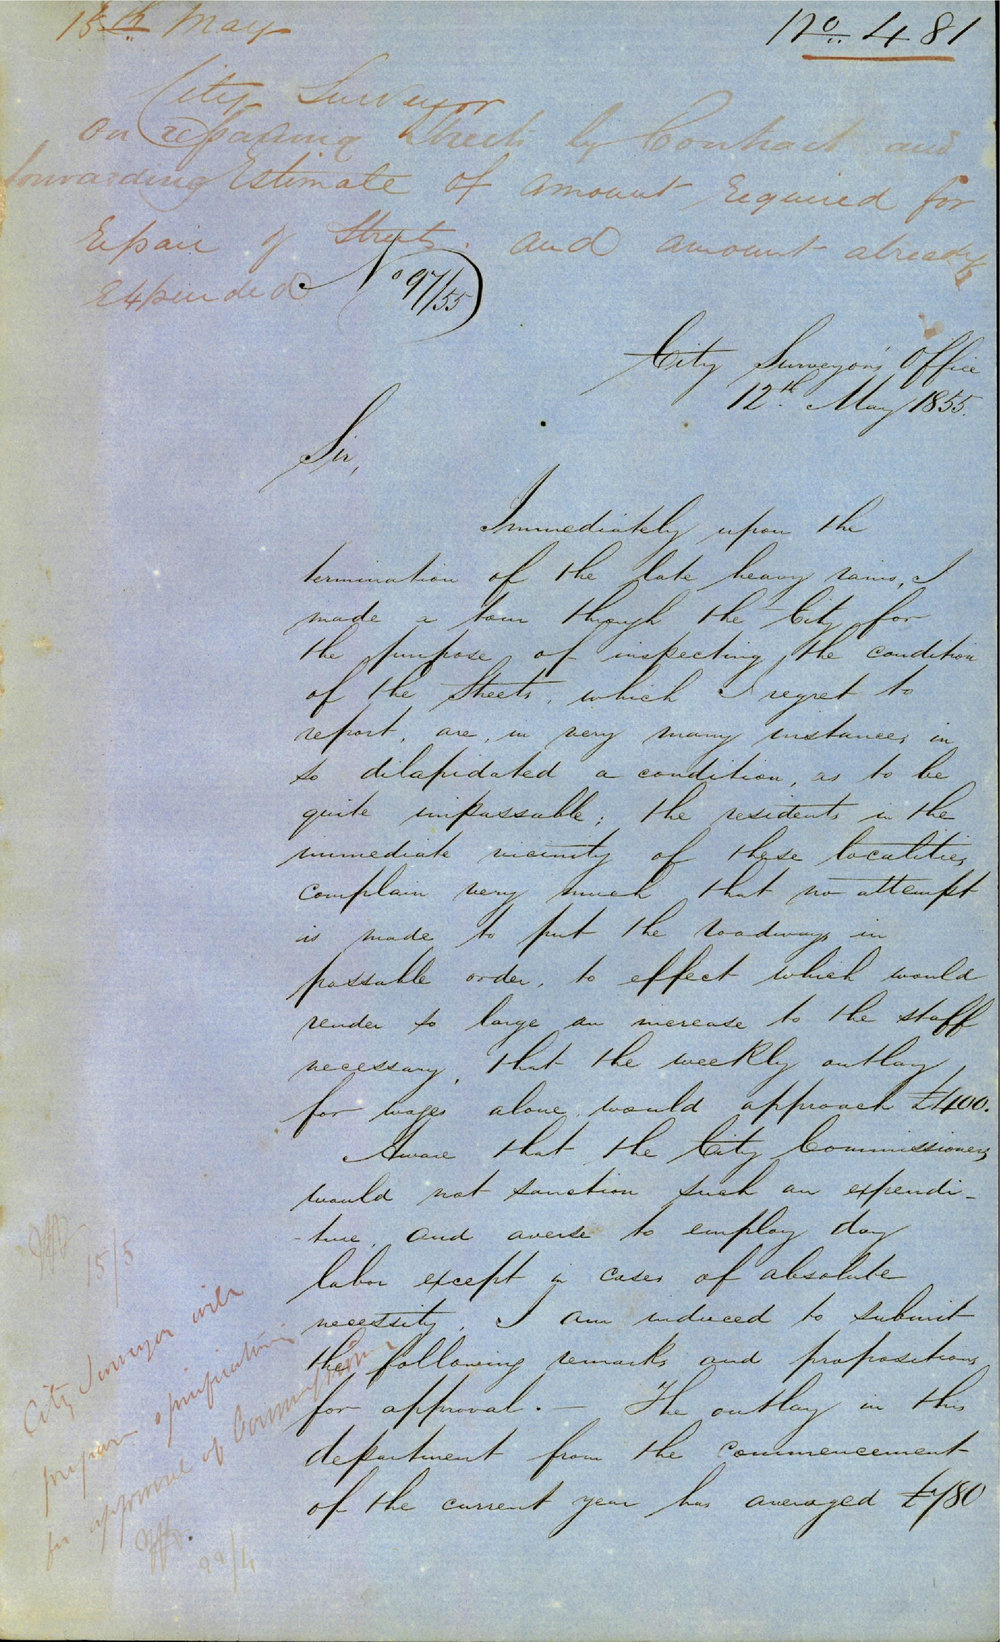 15th May
No. 481
City Surveyor
On repairing Streets by Contract and
forwarding Estimate of amount required for
Repair of Streets. and amount already
Expended
No 97/55
City Surveyor's Office
12th May 1855.
Sir,
Immediately upon the
termination of the late heavy rains, I
made a tour through the City for
the purpose of inspecting the condition
of the Streets, which I regret to
report, are, in very many instances in
so dilapidated a condition, as to be
quite impassable; the residents in the
immediate vicinity of these localities,
complain very much that no attempt
is made to put the roadways in
passable order, to effect which would
render so large an increase to the staff
necessary, that the weekly outlay
for wages alone would approach £400.
Aware that the City Commissioners
would not sanction such an expendi-
-ture, and averse to employ day
labor except in cases of absolute
necessity, I am induced to submit
the following remarks and propositions
for approval. — The outlay in this
department from the commencement
of the current year has averaged £780
15/5
City Surveyor will
prepare specifications
for approval of Commission
22/4